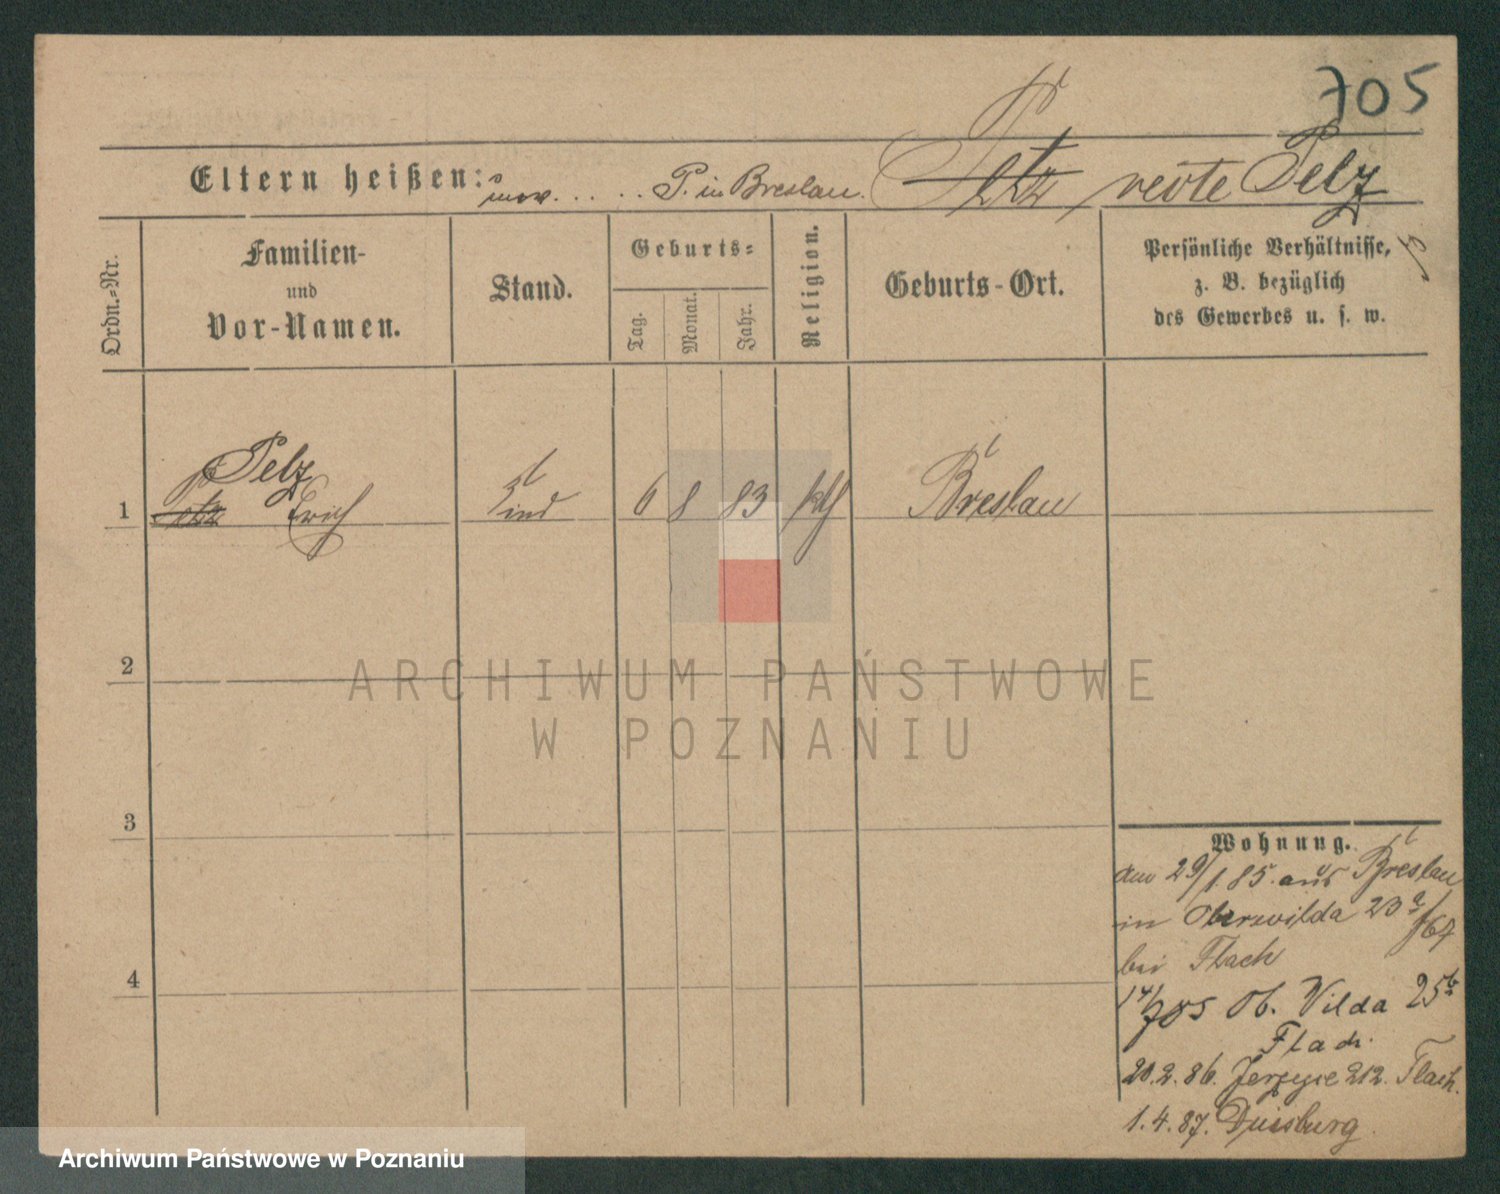 705
Eltern heißen: unv. . . . . . P. in Breslau. Petz recte Pelz
Ordn.-Nr.
Familien-
und
Vor-Namen.
Stand.
Geburts-
Tag.
Monat.
Jahr.
Religion.
Geburts-Ort.
Persönliche Verhältnisse,
z. B. bezüglich
des Gewerbes u. s. w.
Pelz
1 Petz Erich Kind 6 8 83 kth Breslau
2
3
4
ARCHIWUM PAŃSTWOWE
W POZNANIU
Wohnung.
den 29/1.85. aus Breslau
in Oberwilda 23a/64
bei Flach
14/7 85 Ob. Vilda 25b
Flach.
20.2.86. Jerzyce 212. Flach.
1.4.87. Duisburg
Archiwum Państwowe w Poznaniu